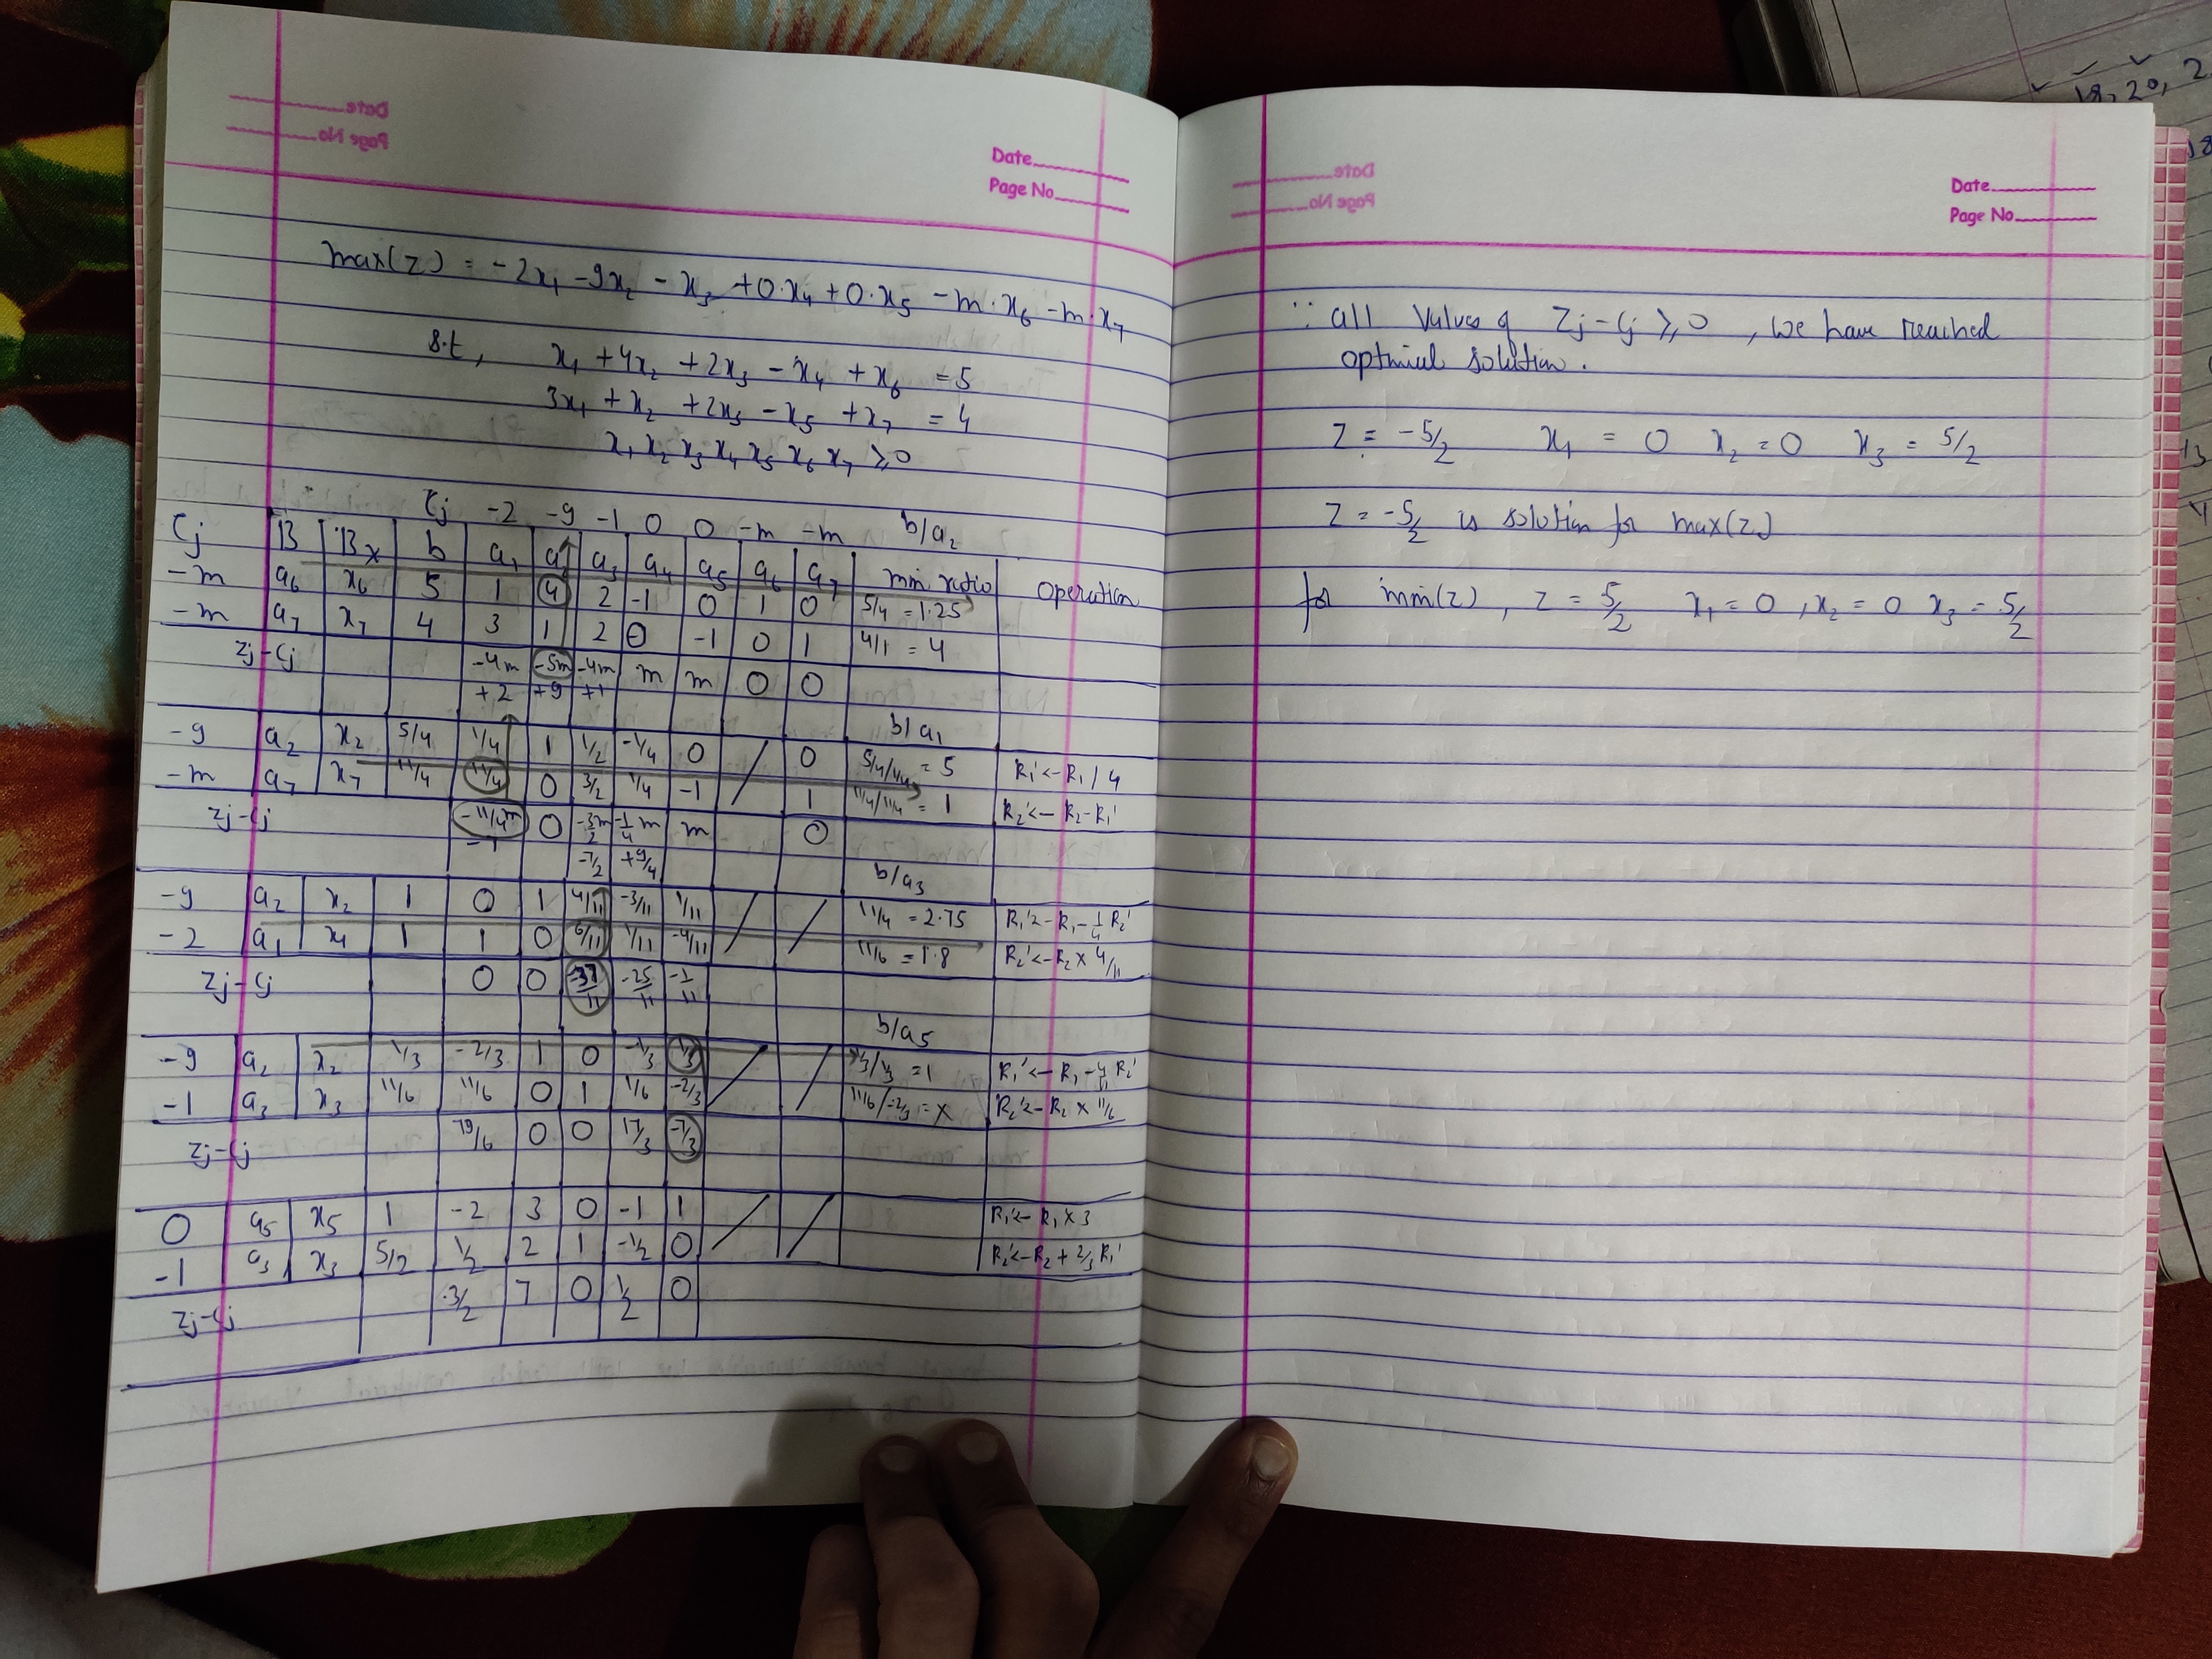 Date
Page No
max(z) = -2x1 - 9x2 - x3 + 0.x4 + 0.x5 - m.x6 - m.x7
s.t, x1 + 4x2 + 2x3 - x4 + x6 = 5
3x1 + x2 + 2x3 - x5 + x7 = 4
x1 x2 x3 x4 x5 x6 x7 ≥ 0
Cj -2 -9 -1 0 0 -m -m b/a2
Cj B Bx b a1 a2 a3 a4 a5 a6 a7 min ratio operation
-m a6 x6 5 1 4 2 -1 0 1 0 5/4 = 1.25
-m a7 x7 4 3 1 2 0 -1 0 1 4/1 = 4
Zj-Cj -4m+2 -5m+9 -4m+1 m m 0 0
b/a1
-9 a2 x2 5/4 1/4 1 1/2 -1/4 0 0 5/4/1/4 = 5 R1' <- R1/4
-m a7 x7 11/4 11/4 0 3/2 1/4 -1 1 11/4/11/4 = 1 R2' <- R2-R1'
Zj-Cj -11/4m-1/4 0 -3/2m-7/2 -1/4m+9/4 m 0
b/a3
-9 a2 x2 1 0 1 4/11 -3/11 1/11 11/4 = 2.75 R1' <- R1-1/4R2'
-2 a1 x1 1 1 0 6/11 1/11 -4/11 11/6 = 1.8 R2' <- R2 x 4/11
Zj-Cj 0 0 -37/11 25/11 -1/11
b/a5
-9 a2 x2 1/3 -2/3 1 0 -1/3 1/3 1/3/1/3 = 1 R1' <- R1-4/11R2'
-1 a3 x3 11/6 11/6 0 1 1/6 -2/3 11/6/-2/3 = x R2' <- R2 x 11/6
Zj-Cj 37/6 0 0 17/3 -7/3
0 a5 x5 1 -2 3 0 -1 1 R1' <- R1x3
-1 a3 x3 5/2 1/2 2 1 -1/2 0 R2' <- R2+2/3R1'
Zj-Cj 3/2 7 0 1/2 0
Date
Page No
∵ all values of Zj-Cj ≥ 0, we have reached
optimal solution.
Z = -5/2 x1 = 0 x2 = 0 x3 = 5/2
Z = -5/2 is solution for max(z)
for min(z), z = 5/2 x1 = 0, x2 = 0 x3 = 5/2